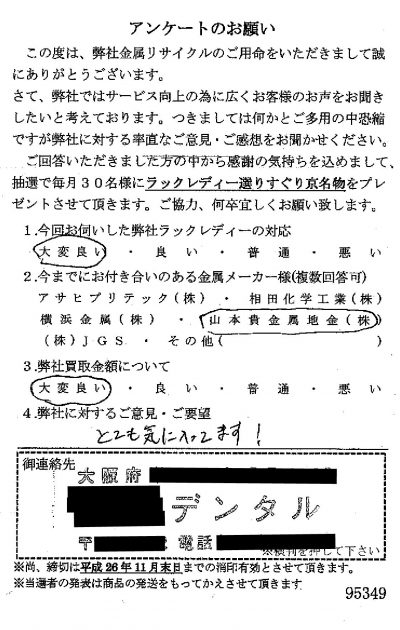 アンケートのお願い
この度は、弊社金属リサイクルのご用命をいただきまして誠
にありがとうございます。
さて、弊社ではサービス向上の為に広くお客様のお声をお聞き
したいと考えております。つきましては何かとご多用の中恐縮
ですが弊社に対する率直なご意見・ご感想をお聞かせください。
ご回答いただきました方の中から感謝の気持ちを込めまして、
抽選で毎月30名様にラックレディー選りすぐり京名物をプレ
ゼントさせて頂きます。ご協力、何卒宜しくお願い致します。
1.今回お伺いした弊社ラックレディーの対応
大変良い ・ 良い ・ 普通 ・ 悪い
2.今までにお付き合いのある金属メーカー様(複数回答可)
アサヒプリテック(株) ・ 相田化学工業(株)
横浜金属(株) ・ 山本貴金属地金(株)
(株)JGS ・ その他( )
3.弊社買取金額について
大変良い ・ 良い ・ 普通 ・ 悪い
4.弊社に対するご意見・ご要望
とても気に入ってます!
御連絡先
大阪府
デンタル
〒 電話
※横判を押して下さい
※尚、締切は平成26年11月末日までの消印有効とさせて頂きます。
※当選者の発表は商品の発送をもってかえさせて頂きます
95349